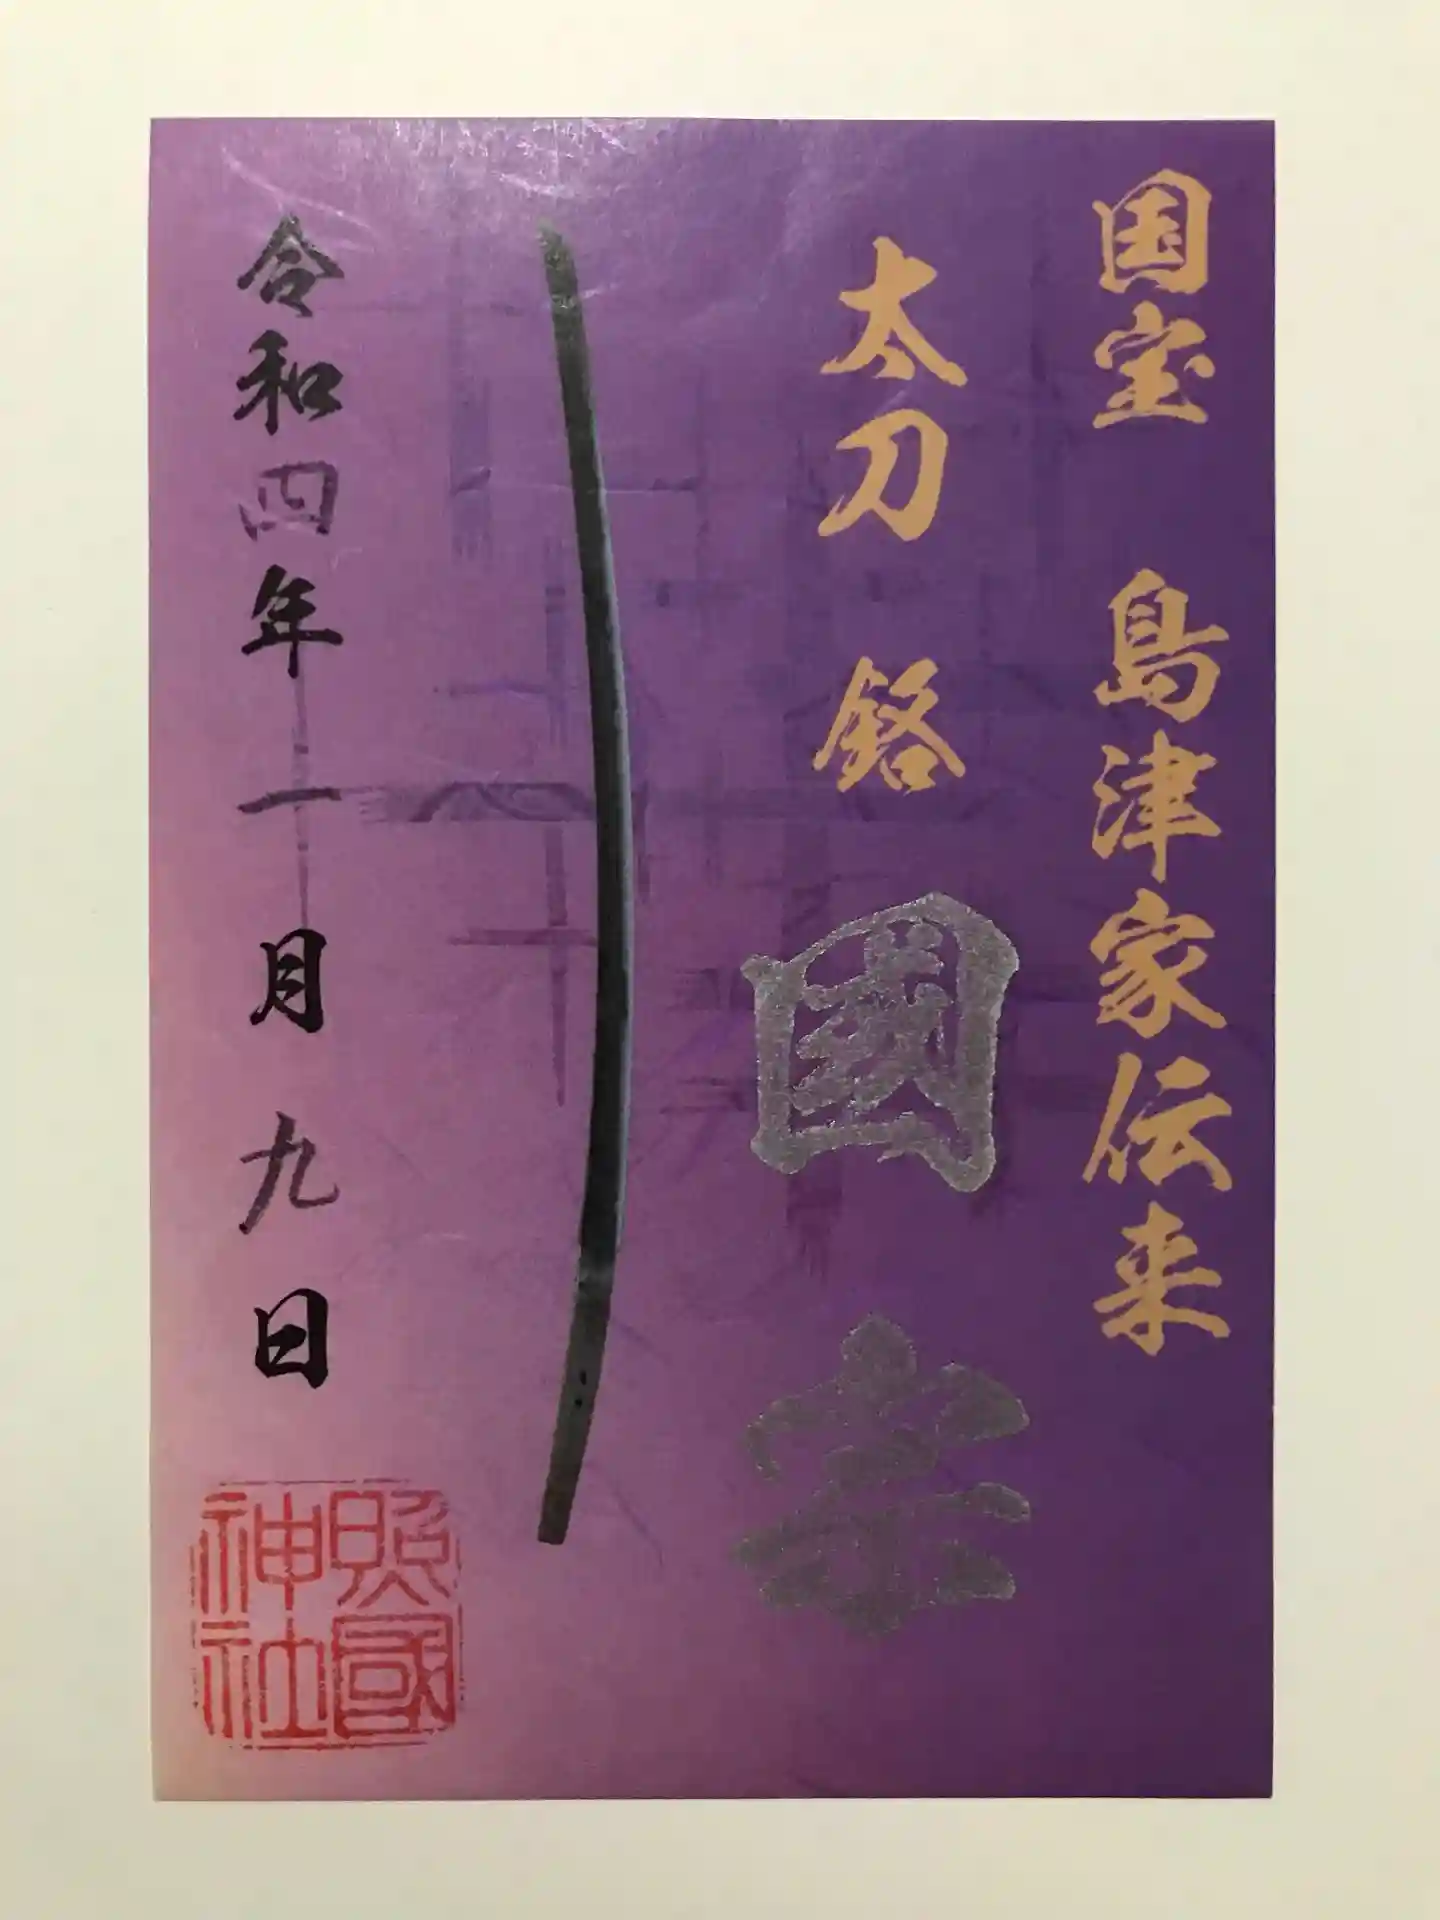 国宝 島津家伝来
太刀 銘 國宗
令和四年十月九日
照國神社